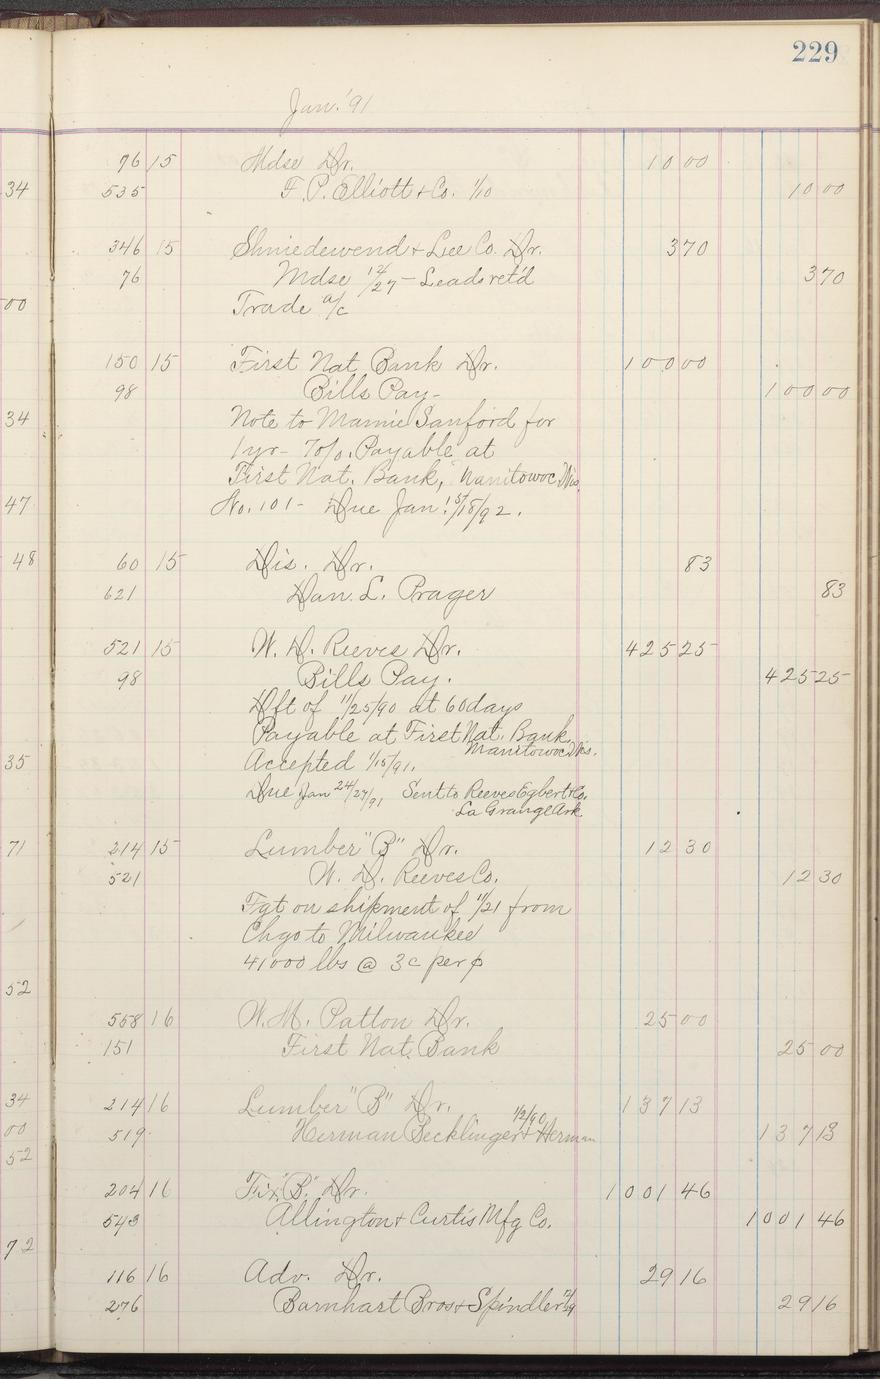 229
Jan. '91
76 15 Mdse Dr. 10 00
34
535 F. P. Elliott & Co. 1/10 10 00
346 15 Shniedewend & Lee Co. Dr. 3 70
76 Mdse 12/27 - Leads ret'd 3 70
00
Trade a/c
150 15 First Nat. Bank Dr. 100 00
98 Bills Pay - 100 00
34
Note to Mamie Sanford for
1 yr - 7 o/o. Payable at
First Nat. Bank, Manitowoc Wis.
47
No. 101 - Due Jan. 15/18/92.
48
60 15 Dis. Dr. 83
621 Dan. L. Prager 83
521 15 W. D. Reeves Dr. 425 25
98 Bills Pay. 425 25
Dft of 11/25/90 at 60 days
Payable at First Nat. Bank,
Manitowoc Wis.
35
Accepted 1/15/91.
Due Jan 24/27/91 Sent to Reeves Egbert & Co.
La Grange Ark.
71
214 15 Lumber "B" Dr. 12 30
521 W. D. Reeves Co. 12 30
Fgt on shipment of 11/21 from
Chgo to Milwaukee
41000 lbs @ 3c per ¢
52
558 16 W. M. Patton Dr. 25 00
151 First Nat. Bank 25 00
34
214 16 Lumber "B" Dr. 137 13
1/2/90
00
519 Herman Becklinger & Herman 137 13
52
204 16 Fix. "B." Dr. 1001 46
543 Allington & Curtis Mfg Co. 1001 46
72
116 16 Adv. Dr. 29 16
276 Barnhart Bros & Spindler 12/19 29 16